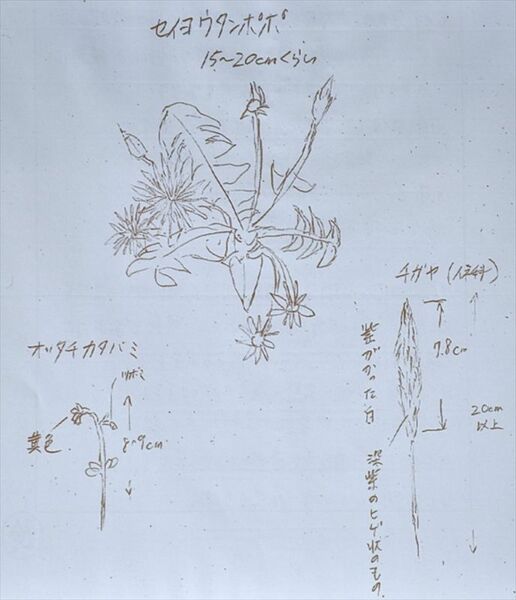 セイヨウタンポポ
15～20cmくらい
チガヤ(イネ科)
7.8cm
20cm
以上
紫がかった白
濃紫のヒゲ状のもの
オッタチカタバミ
ツボミ
黄色
8~9cm